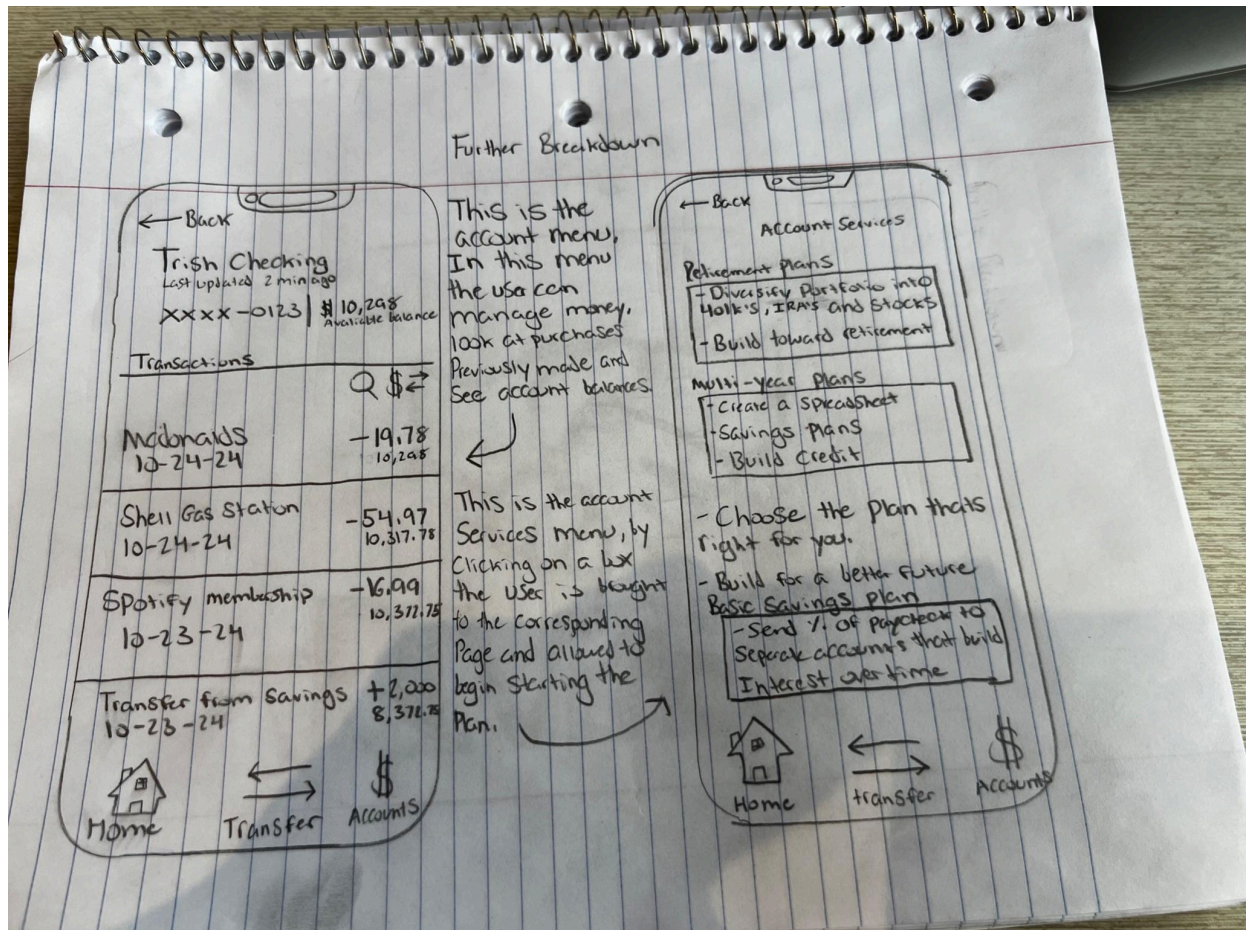 Further Breakdown
← Back
Trish Checking
Last updated 2 min ago
xxxx-0123 | $10,298
Available balance
Transactions
$
Mcdonalds -19.78
10-24-24 10,298
Shell Gas Station -54.97
10-24-24 10,317.78
Spotify membership -16.99
10-23-24 10,372.75
Transfer from Savings +2,000
10-23-24 8,372.75
Home Transfer Accounts
This is the
account menu.
In this menu
the user can
manage money,
look at purchases
Previously made and
See account balances.
This is the account
Services menu, by
Clicking on a box
the user is brought
to the corresponding
Page and allowed to
begin Starting the
Plan.
← Back
Account Services
Retirement Plans
- Diversify Portfolio into
401k's, IRA's and Stocks
- Build toward retirement
Multi-year Plans
- Create a Spreadsheet
- Savings Plans
- Build Credit
- Choose the Plan thats
right for you.
- Build for a better future
Basic Savings Plan
- Send % of Paycheck to
Seperate accounts that build
Interest over time
Home transfer Accounts